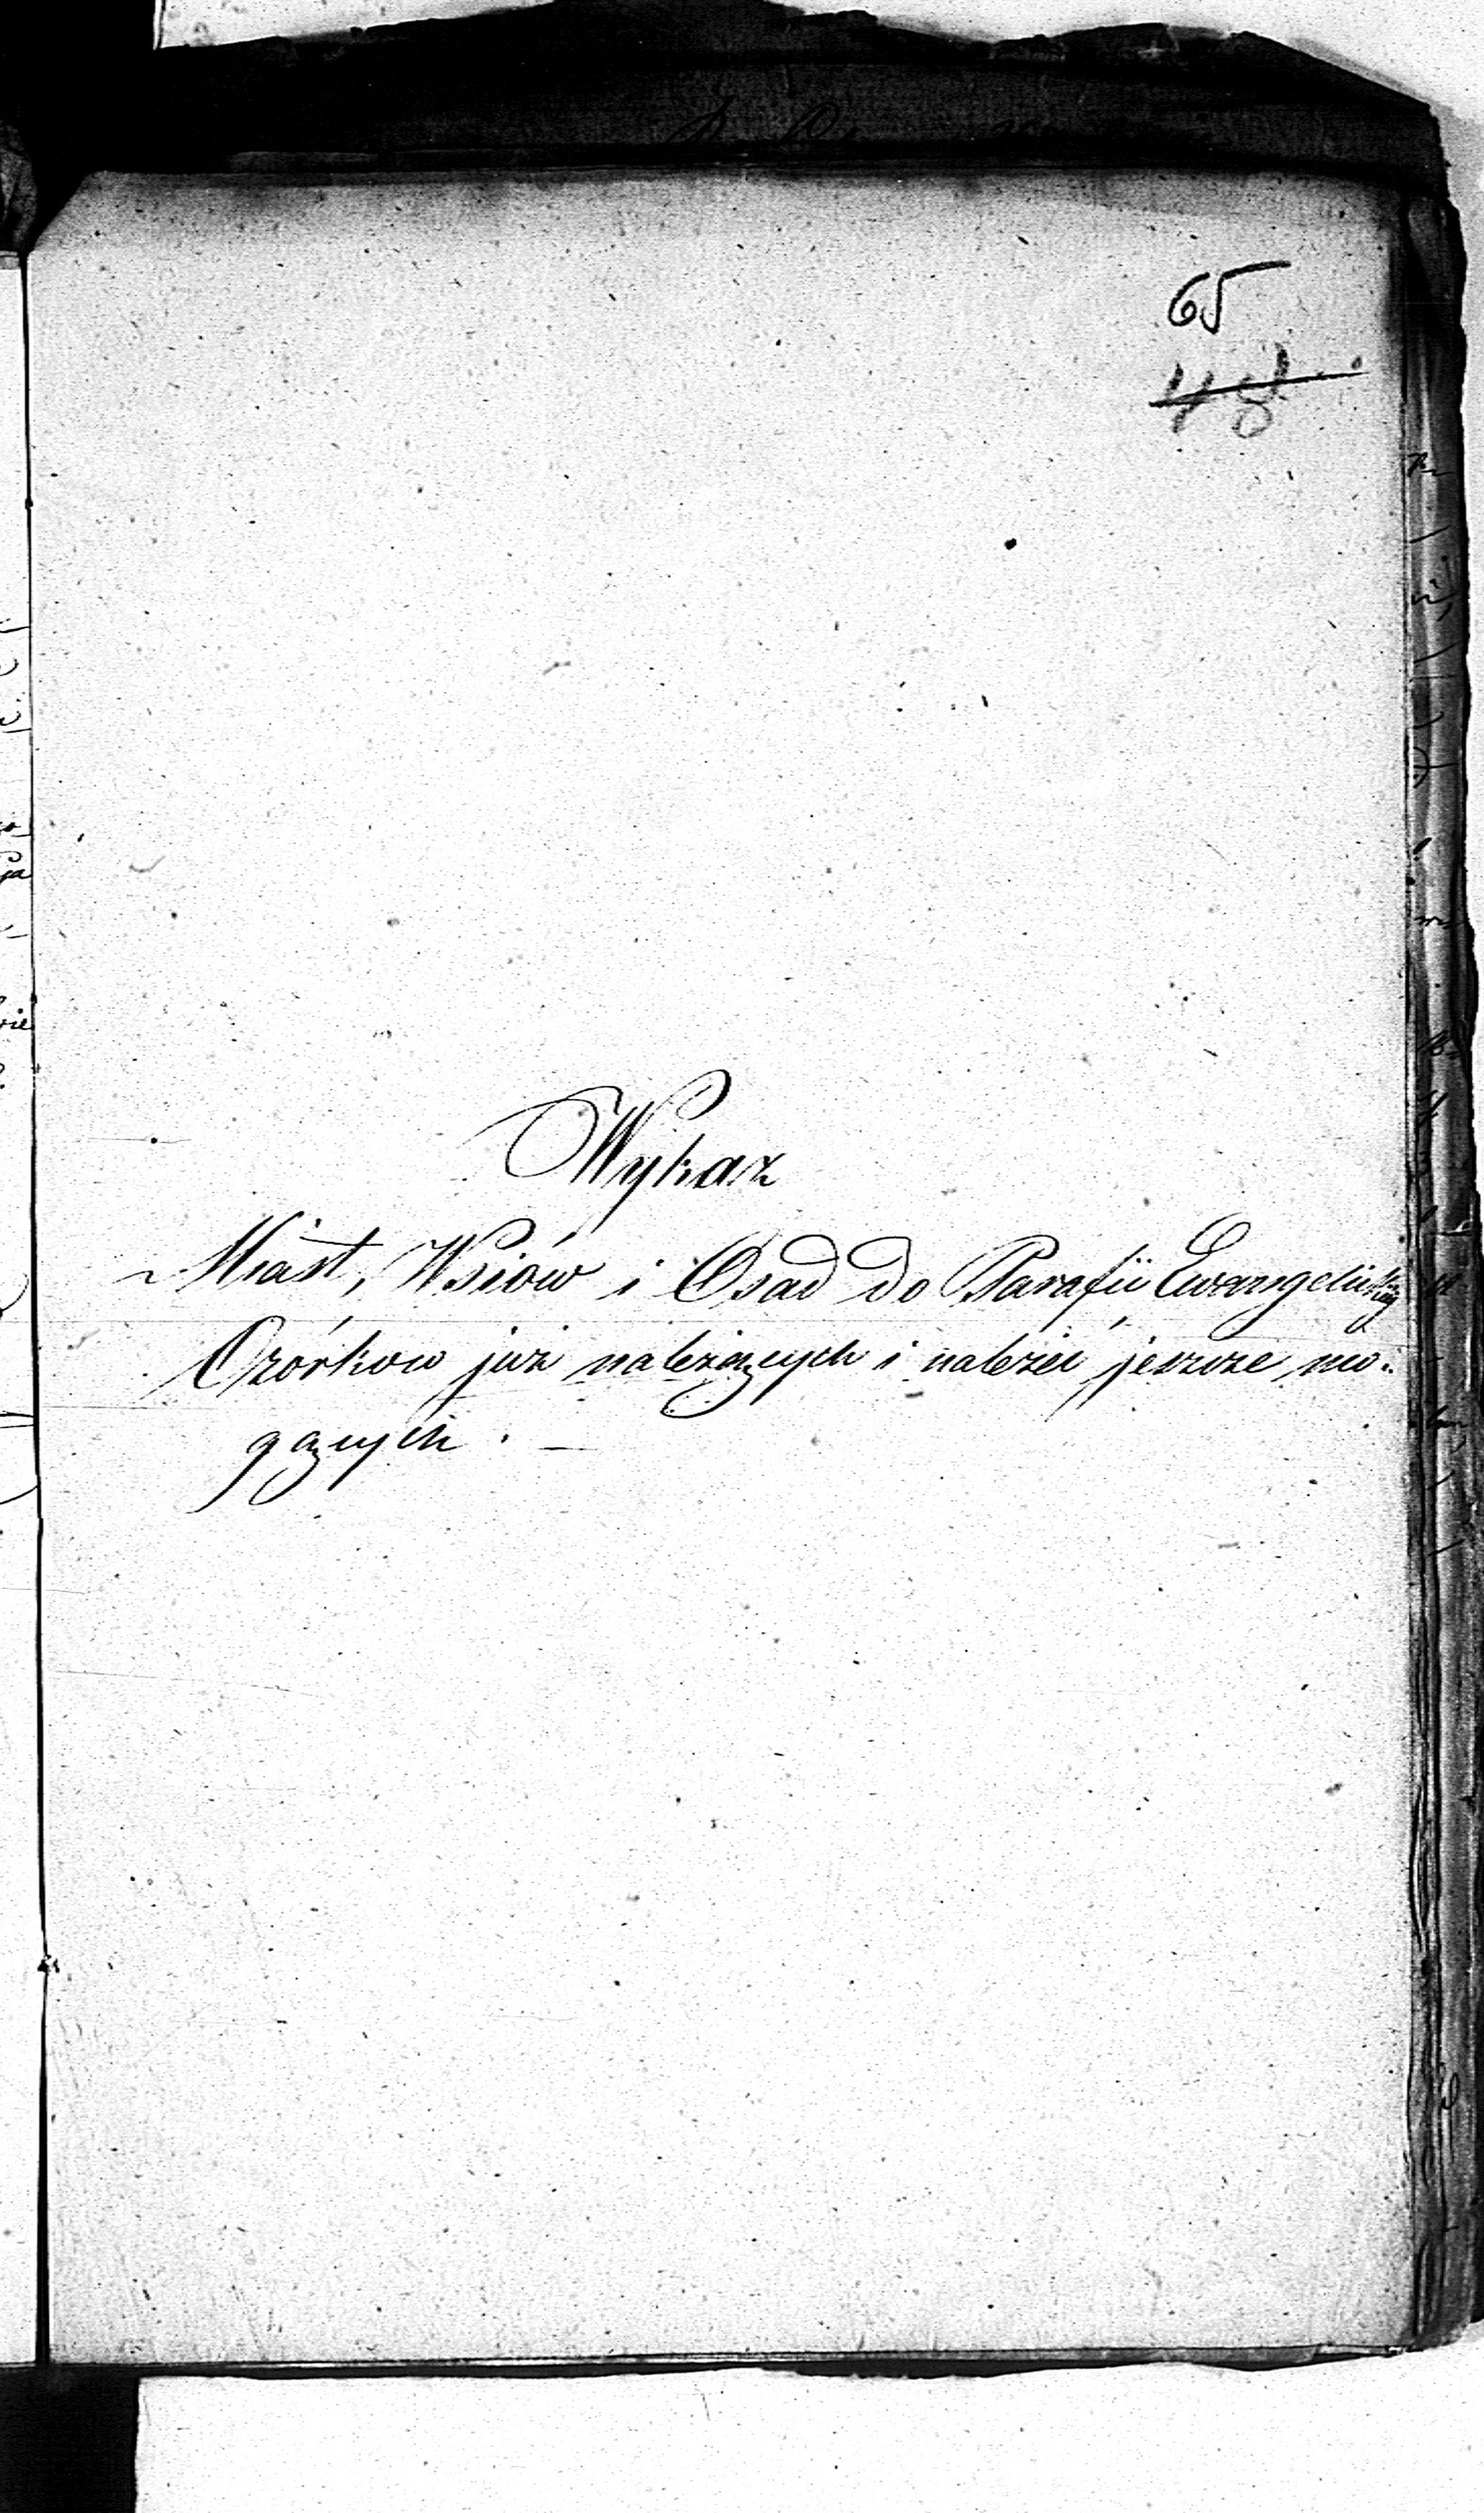 65
Wykaz
Miast, Wsiów i Osad do Parafii Ewangelickiey
Ozórkow już należących i należeć jeszcze mo-
gących. —